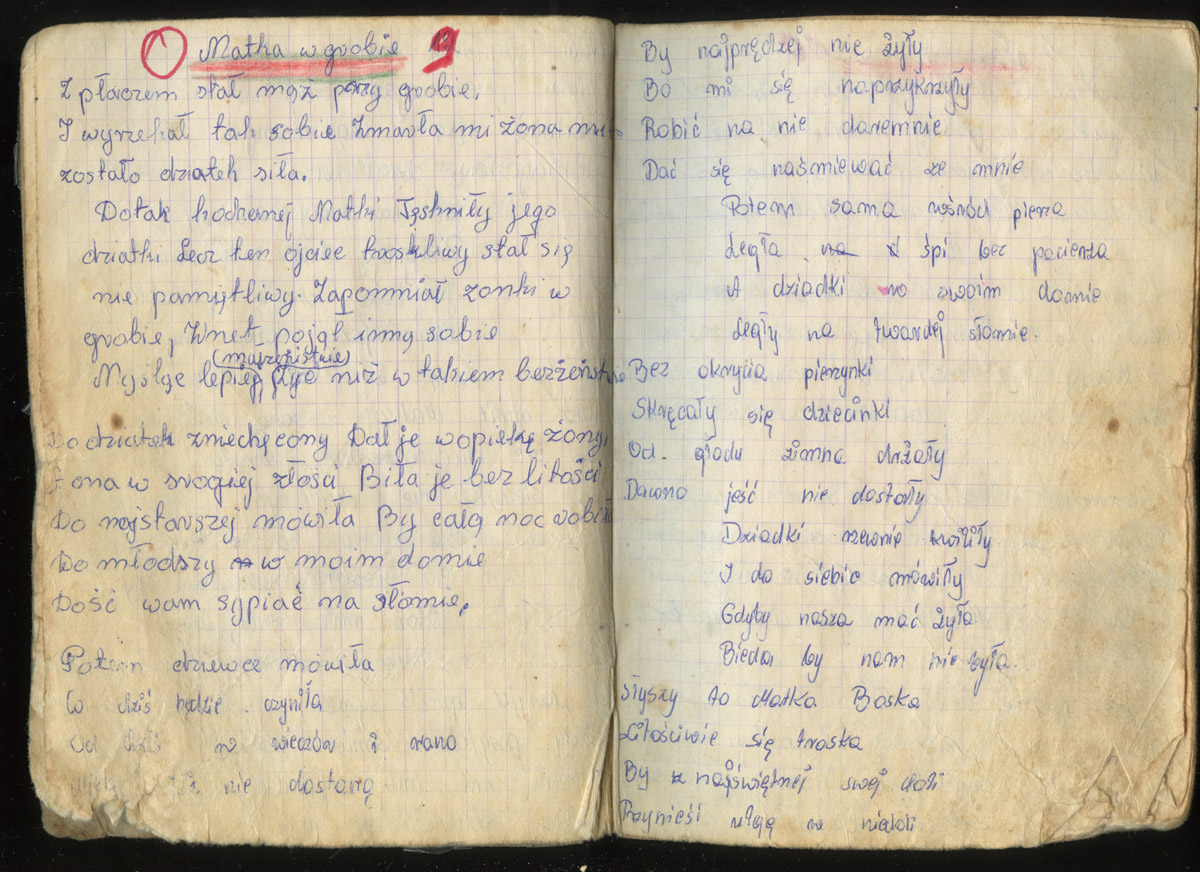 1 Matka w grobie 19
Z płaczem stał mąż przy grobie.
I wyrzekał tak sobie Zmarła mi żona mi
zostało dziatek siła.
Dotak kochanej Matki Tęskniły jego
dziatki Lecz ten ojciec troskliwy stał się
nie pamiętliwy. Zapomniał żonki w
grobie, Wnet pojął inną sobie
Myśląc lepiej żyć niż w takiem bezżeństwie
Do dziatek zniechęcony Dał je w opiekę żony,
A ona w srogiej złości Biła je bez litości
Do najstarszej mówiła By całą noc robiła
Do młodszy w moim domie
Dość wam sypiać na słomie.
Potem dziewce mówiła
Co dziś będzie czyniła
Od dziś na wieczór i rano
nie dostaną
By najprędzej nie żyły
Bo mi się naprzykrzyły
Robić na nie daremnie
Dać się naśmiewać ze mnie
Potem sama wśród pierza
Legła śpi bez pacierza
A dziadki w swoim domie
Legły na twardej słomie.
Bez okrycia pierzynki
Skręcały się dziecinki
Od głodu zimna drżały
Dawno jeść nie dostały
Dziadki rzewnie kwiliły
I do siebie mówiły
Gdyby nasza mać żyła
Bieda by nam nie była.
Słyszy to Matka Boska
Litościwie się troska
By z najświętnej swej doli
Przynieść ulgę w niedoli